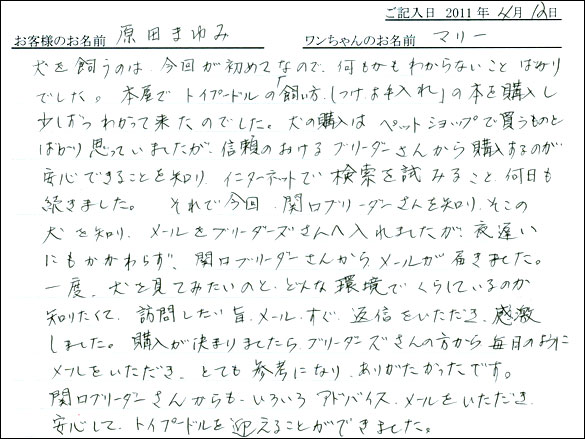 ご記入日 2011年 4月 12日
お客様のお名前 原田まゆみ ワンちゃんのお名前 マリー
犬を飼うのは、今回が初めてなので、何もかもわからないことばかり
でした。本屋でトイプードル「の飼い方、しつけ、お手入れ」の本を購入し
少しずつわかって来たのでした。犬の購入はペットショップで買うものと
ばかり思っていましたが、信頼のおけるブリーダーさんから購入するのが
安心できることを知り、インターネットで検索を試みること、何日も
続きました。 それで今回、関口ブリーダーさんを知り、そこの
犬を知り、メールをブリーダーズさんへ入れましたが、夜遅い
にもかかわらず、関口ブリーダーさんからメールが届きました。
一度、犬を見てみたいのと、どんな環境でくらしているのか
知りたくて、訪問したい旨、メール、すぐ、返信をいただき、感激
しました。購入が決まりましたら、ブリーダーズさんの方から毎日のように
メールをいただき、とても参考になり、ありがたかったです。
関口ブリーダーさんからも、いろいろアドバイス、メールをいただき、
安心して、トイプードルを迎えることができました。